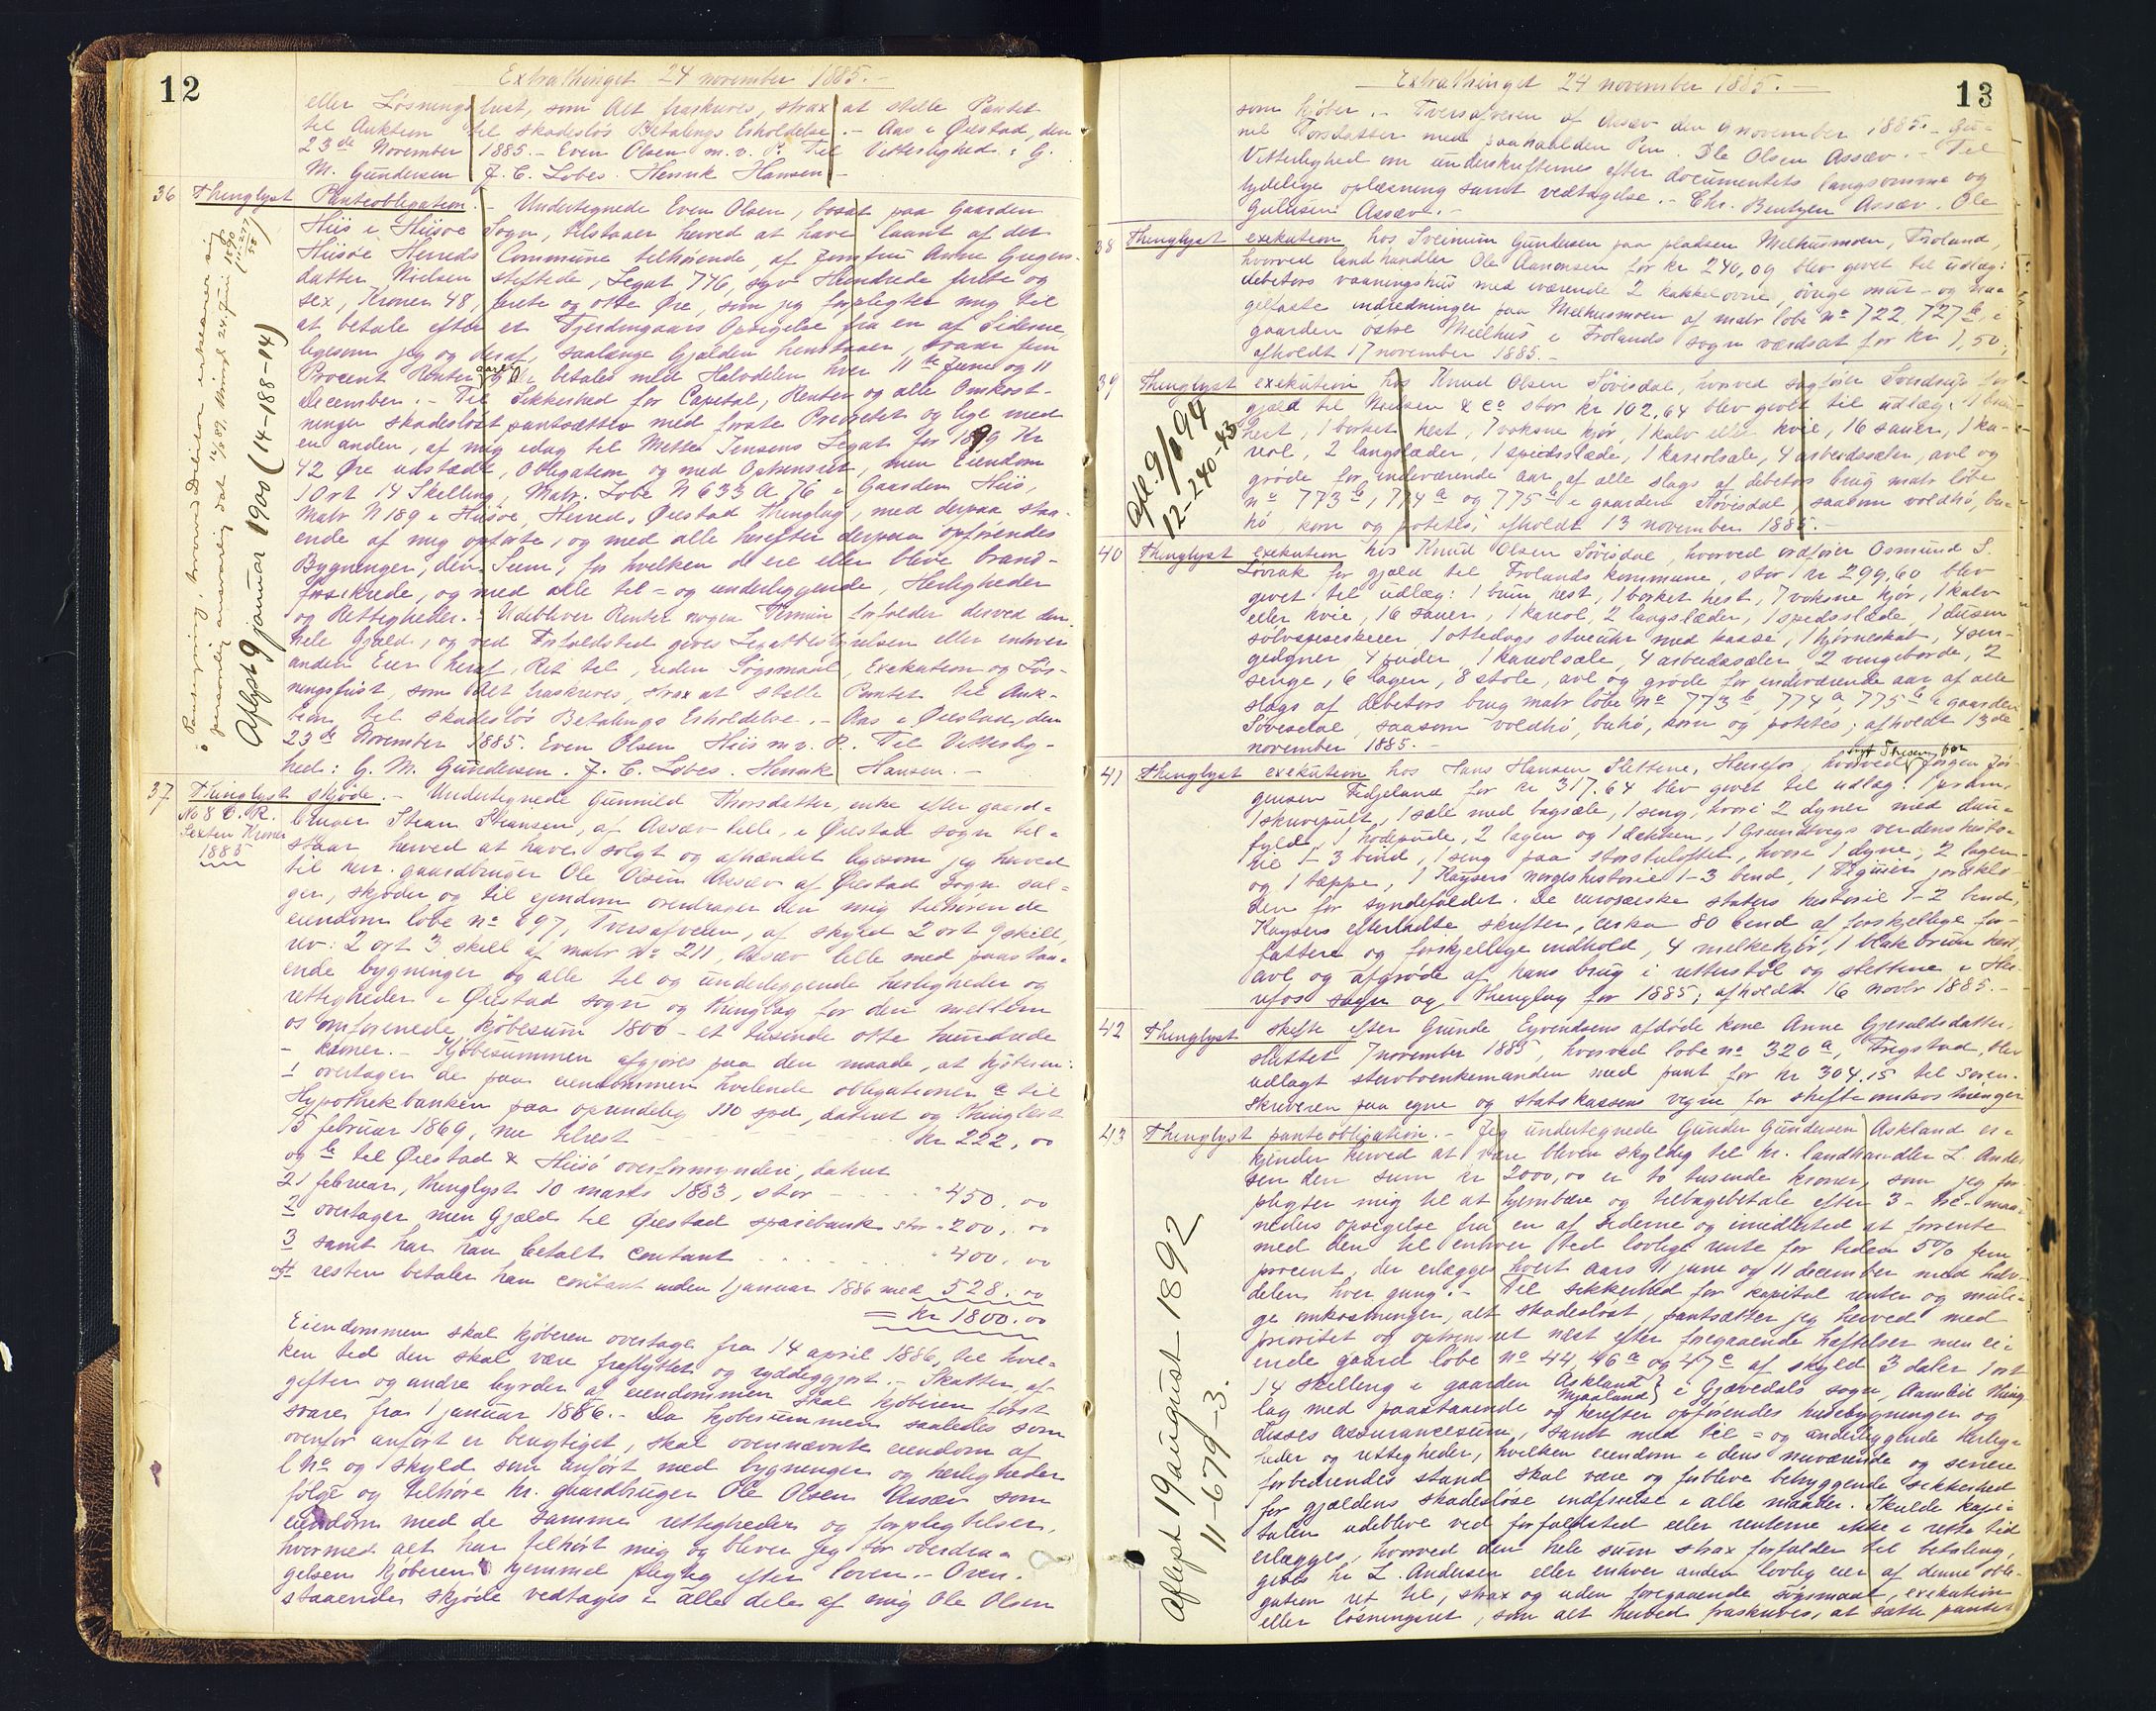 12
Extrathinget 24 november 1885.-
eller Løsningsfrist, som Alt fraskrives, strax at stille Pantet
til Auktion til skadesløs Betalings Erholdelse.- Aas i Øiestad, den
23de November 1885.- Even Olsen m.v.P. Til Vitterlighed: G.
M. Gundersen J. C. Lobes. Henrik Hansen.-
36 Thinglyst Panteobligation.- Undertegnede Even Olsen, bosat paa Gaarden
Hiis i Hiisøe Sogn, tilstaaer herved at have laant af det
Hiisøe Herreds Commune tilhørende, af Jomfru Anne Gregers-
datter Nielsen stiftede, Legat 746, syv Hundrede firti og
sex, Kroner 48, førti og otte Øre, som jeg forpligter mig til
at betale efter et Fjerdingaars Opsigelse fra en af Siderne,
ligesom jeg og deraf, saalænge Gjælden henstaaer, svarer fem
Procent Renter aarlig, betales med Halvdelen hver 11te Juni og 11
December.- Til Sikkerhed for Capital, Renter og alle Omkost-
ninger skadesløst pantsættes med første Prioritet og lige med
en anden, af mig idag til Mette Jensens Legat for 1899 Kr
42 Øre udstædt, Obligation og med Optrinsret, min Eiendom
1 Ort 14 Skilling, Matr. Løbe N 633 A 76 i Gaarden Hiis,
Matr N 189 i Hiisøe Herred, Øiestad Thinglag, med derpaa staa-
ende af mig opførte, og med alle herefter derpaa opførendes
Bygninger, den Sum, for hvilken de ere eller blive brand-
forsikrede, og med alle til- og underliggende Herligheder
og Rettigheder.- Udebliver Renter nogen Termin forfalder derved den
hele Gjæld, og ved Forfaldstid gives Legatbestyrelsen eller enhver
anden Eier heraf, Ret til, uden Søgsmaal, Exekution og Løs-
ningsfrist, som Alt fraskrives, strax at stille Pantet til Auk-
tion til skadesløs Betalings Erholdelse.- Aas i Øiestad, den
23de November 1885. Even Olsen Hiis m.v.P. Til Vitterlig-
hed: G. M. Gundersen. J. C. Lobes. Henrik Hansen.-
Aflyst 9 januar 1900 (14-188-14)
37 Thinglyst skjøde.- Undertegnede Gunnild Thorsdatter, enke efter gaard-
No 8 C. R.
Sexten Kroner
1885
bruger Stean Steansen, af Assæv lille, i Øiestad sogn til-
staar herved at have solgt og afhændet ligesom jeg herved
til herr. gaardbruger Ole Olsen Assæv af Øiestad sogn sæl-
ger, skjøder og til ejendom overdrager den mig tilhørende
eiendom løbe no 697, Tversafveien, af skyld 2 ort 9 skill,
rev: 2 ort 3 skill af matr no 211, Assæv lille med paastaa-
ende bygninger og alle til og underliggende herligheder og
rettigheder i Øiestad sogn og thinglag for den mellem
os omforenede kjøbesum 1800 - et tusinde otte hundrede
- kroner.- Kjøbesummen afgjøres paa den maade, at kjøberen:
1 overtager de paa eiendommen hvilende obligationer a til
Hypothekbanken paa oprindelig 110 spd, dateret og thinglæst
15 februar 1869, nu tilrest - - - kr 222,00
og b til Øiestad & Hiisø overformynderi, dateret
21 februar, thinglyst 10 marts 1883, stor - - - " 450.00
2 overtager min Gjæld til Øiestad sparebank stor " 200,00
3 samt har han betalt contant . . . " 400,00
og 4 resten betaler han contant inden 1 januar 1886 med 528.00
= kr 1800.00
Eiendommen skal kjøberen overtage fra 14 april 1886, til hvil-
ken tid den skal være fraflyttet og ryddiggjort.- Skatter, af-
gifter og andre byrder af eiendommen skal kjøberen først
svare fra 1 januar 1886.- Da kjøbesummen saaledes som
ovenfor anført er berigtiget, skal ovennævnte eiendom af
l no og skyld som anført med bygninger og herligheder
følge og tilhøre hr. gaardbruger Ole Olsen Assæv som
eiendom med de samme rettigheder og forpligtelser,
hvormed alt har tilhørt mig og bliver jeg for overdra-
gelsen kjøberens hjemmel pligtig efter loven.- Oven-
staaende skjøde vedtages i alle dele af mig Ole Olsen
13
Extrathinget 24 november 1885.-
som kjøber.- Tversafveien af Assæv den 9 november 1885.- Gu-
nil Torsdatter med paaholden Pen. Ole Olsen Assæv.- Til
Vitterlighed om underskrifternes efter documentets langsomme og
tydelige oplæsning samt vedtagelse.- Chr. Bentzen Assæv. Ole
Gulusen Assæv.-
38 Thinglyst exekution hos Sveinum Gundersen paa pladsen Melhusmoen, Froland,
hvorved landhandler Ole Aanonsen for kr 240,09 blev givet til udlæg:
debitors vaaningshus med iværende 2 kakkelovne, øvrige mur- og na-
gelfaste indredninger paa Melhusmoen af matr løbe no 722, 727b, i
gaarden østre Mielhus i Frolands sogn værdsat for kr 1,50;
afholdt 17 november 1885.-
39 Thinglyst exekution hos Knud Olsen Søvisdal, hvorved sagfører Svedrup for
gjæld til Nielsen & Co stor kr 102,64 blev givet til udlæg: 1 brun
hest, 1 borket hest, 7 voksne kjør, 1 kalv eller kvie, 16 sauer, 1 ka-
riol, 2 langslæder, 1 spidsslæde, 1 kariolsale, 4 arbeidssæler, avl og
grøde for indeværende aar af alle slags af debitors brug matr løbe
no 773b, 774a og 775b i gaarden Søvisdal, saasom voldhø, bu-
hø, korn og potetes; afholdt 13 november 1885.-
Afl. 9/6 94
12-240-43
40 Thinglyst exekution hos Knud Olsen Søvisdal, hvorved ordfører Osmund S.
Lovrak for gjæld til Frolands kommune, stor kr 299,60 blev
givet til udlæg: 1 brun hest, 1 borket hest, 7 voksne kjør, 1 kalv
eller kvie, 16 sauer, 1 kariol, 2 langslæder, 1 spidsslæde, 1 dusin
sølvspiseskeer, 1 ottedags stueuhr med kasse, 1 hjørneskab, 4 sen-
gedyner 4 puder, 1 kariolsæle, 4 arbeidssæler, 2 vengeborde, 2
senge, 6 lagen, 8 stole, avl og grøde for indeværende aar af alle
slags af debitors brug matr løbe no 773b, 774a, 775b i gaarden
Søvesdal, saasom voldhø, buhø, korn og potetes; afholdt 13de
november 1885.-
41 Thinglyst exekution hos Hans Hansen Slettene, Herefos, hvorved Jørgen Jør-
gensen Fidjeland for kr 317.64 blev givet til udlæg: 1 pram,
1 skrivepult, 1 sæle med bogsæle, 1 seng, hvori 2 dyner med dun-
fyld, 1 hodepude, 2 lagen og 1 dækken, 1 Grundtvigs verdens histo-
rie 1-3 bind, 1 seng paa storstueloftet, hvori 1 dyne, 2 lagen
og 1 tæppe, 1 Kaysers norgeshistorie 1-3 bind, 1 Figuier jordklo-
den før syndefloden. De europæiske staters historie 1-2 bind,
Kaysers efterladte skrifter, cirka 80 bind af forskellige for-
fattere og forskjellige indhold, 4 melkekjør, 1 blakbrun hest,
avl og afgrøde af hans brug i retterstøl og slettene i Her-
refos sogn og thinglag for 1885; afholdt 16 novbr 1885.-
42 Thinglyst skifte efter Gunde Eyvindsens afdøde kone Anne Gjeruldsdatter,
sluttet 7 november 1885, hvorved løbe no 320a, Trigstad, blev
udlagt stervboenkemanden med pant for kr 304.15 til soren-
skriveren paa egne og statskassens vegne for skifteomkostninger
43 Thinglyst panteobligation.- Jeg undertegnede Gunder Gundersen Askland er-
kjender herved at være bleven skyldig til hr. landhandler L. Ander-
sen den sum kr 2000,00 er to tusende kroner, som jeg for-
pligter mig til at hjembære og tilbagebetale efter 3 - tre - maa-
neders opsigelse fra en af siderne og imidlertid at forrente
med den til enhver tid lovlige rente for tiden 5% fem
procent, der erlægges hvert aars 11 june og 11 december med halv-
delen hver gang.- Til sikkerhed for kapital renter og muli-
ge omkostninger, alt skadesløst, pantsætter jeg herved med
prioritet og optrinsret næst efter foregaaende hæftelser min ei-
ende gaard løbe no 44, 46a og 47a af skyld 3 daler 1 ort
14 skilling i gaarden Askland Mjaaland } i Gjævedals sogn, Aamlid thing-
lag med paastaaende og herefter opførendes husebygninger og
disses assurancesum, samt med til- og underliggende herlig-
heder og rettigheder, hvilken eiendom i dens nuværende og senere
forbedrendes stand skal være og forblive betryggende sikkerhed
for gjældens skadesløse indfrielse i alle maader. Skulde kapi-
talen udeblive ved forfaldstid eller renterne ikke i rette tid
erlægges, hvorved den hele sum strax forfalder til betaling,
gives hr L. Andersen eller enhver anden lovlig eier af denne obli-
gation ret til, strax og uden foregaaende søgsmaal, exekution
eller løsningsret, som alt herved fraskrives, at sætte pantet
Aflyst 19 august 1892
11-679-3.